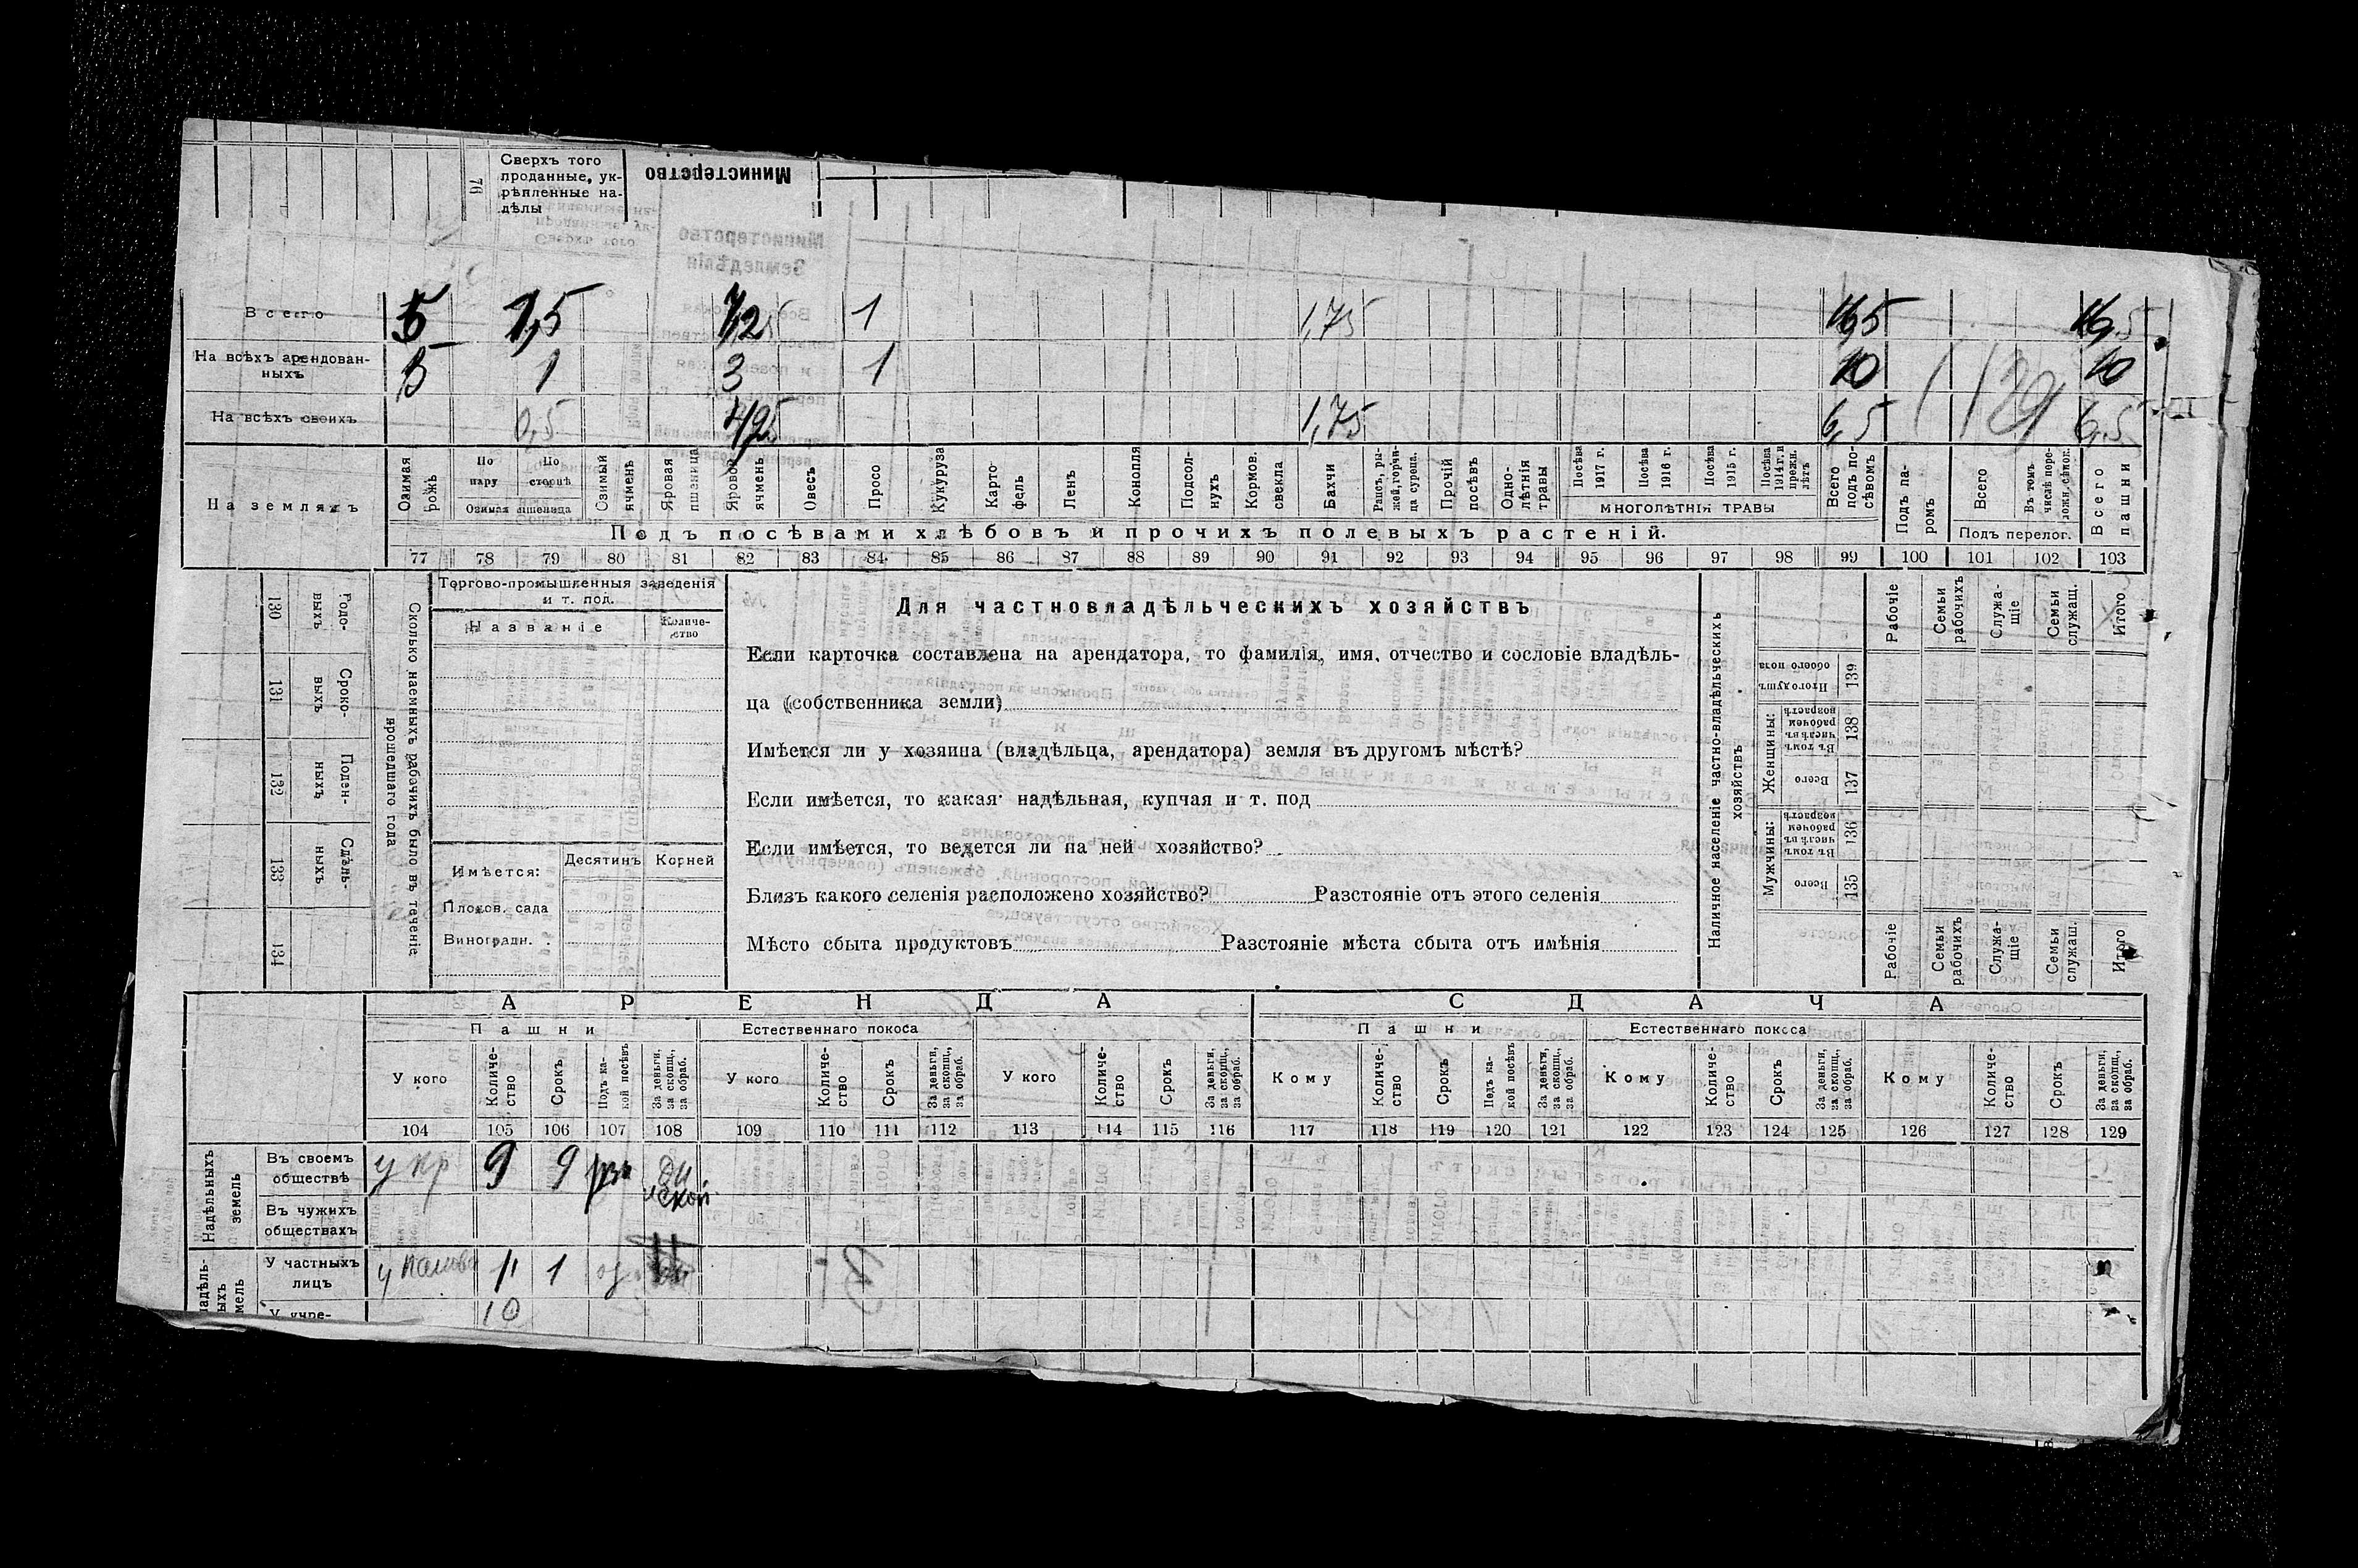 76
Сверхъ того
проданные, ук-
рѣпленные на-
дѣлы
Министерство
Всего 5 1,5 7,25 1 1,75 16,5 16,5
На всѣхъ арендован-
ныхъ 5 1 3 1 10 10
На всѣхъ своихъ 0,5 4,25 1,75 6,5 6,5
На земляхъ
Озимая рожь
По пару
По сторнѣ
Озимая пшеница
Озимый ячмень
Яровая пшеница
Яровой ячмень
Овесъ
Просо
Кукуруза
Карто-
фель
Ленъ
Конопля
Подсол-
нухъ
Кормов. свекла
Бахчи
Рапсъ, ры-
жей, горчи-
ца сурепа.
Прочій посѣвъ
Одно-
лѣтнія травы
Посѣва 1917 г.
Посѣва 1916 г.
Посѣва 1915 г.
Посѣва 1914 г. и прежн. лѣтъ
МНОГОЛѢТНІЯ ТРАВЫ
Всего подъ по-
сѣвомъ
Подъ па-
ромъ
Всего
Въ томъ числѣ пере-
ложн. сѣнок.
Подъ перелог.
Всего пашни
Подъ посѣвами хлѣбовъ и прочихъ полевыхъ растеній.
77 78 79 80 81 82 83 84 85 86 87 88 89 90 91 92 93 94 95 96 97 98 99 100 101 102 103
130 Годо-
выхъ
131 Сроко-
выхъ
132 Поден-
ныхъ
133 Сдѣль-
ныхъ
134
Сколько наемныхъ рабочихъ было въ теченіе
прошедшаго года
Торгово-промышленныя заведенія
и т. под.
Названіе
Количе-
ство
Имѣется:
Десятинъ Корней
Плодов. сада
Виноградн.
Для частновладѣльческихъ хозяйствъ
Если карточка составлена на арендатора, то фамилія, имя, отчество и сословіе владѣль-
ца (собственника земли)
Имѣется ли у хозяина (владѣльца, арендатора) земля въ другомъ мѣстѣ?
Если имѣется, то какая надѣльная, купчая и т. под
Если имѣется, то ведется ли на ней хозяйство?
Близъ какого селенія расположено хозяйство? Разстояніе отъ этого селенія
Мѣсто сбыта продуктовъ Разстояніе мѣста сбыта отъ имѣнія
Наличное населеніе частно-владѣльческихъ
хозяйствъ
Итого душъ обоего пола 139
Женщины:
Въ томъ числѣ въ рабочем возрастѣ 138
Всего 137
Мужчины:
Въ томъ числѣ въ рабочем возрастѣ 136
Всего 135
Рабочіе
Семьи рабочихъ
Служа-
щіе
Семьи служащ.
Итого
Рабочіе
Семьи рабочихъ
Служа-
щіе
Семьи служащ.
Итого
АРЕНДА СДАЧА
Пашни Естественнаго покоса Пашни Естественнаго покоса
У кого
Количе-
ство
Срокъ
Подъ ка-
кой посѣвъ
За деньги, за скопщ., за обраб.
У кого
Количе-
ство
Срокъ
За деньги, за скопщ., за обраб.
У кого
Количе-
ство
Срокъ
За деньги, за скопщ., за обраб.
Кому
Количе-
ство
Срокъ
Подъ ка-
кой посѣвъ
За деньги, за скопщ., за обраб.
Кому
Количе-
ство
Срокъ
За деньги, за скопщ., за обраб.
Кому
Количе-
ство
Срокъ
За деньги, за скопщ., за обраб.
104 105 106 107 108 109 110 111 112 113 114 115 116 117 118 119 120 121 122 123 124 125 126 127 128 129
Надѣльныхъ
земель
Въ своемъ
обществѣ у кр 9 9
Въ чужихъ
обществахъ
У частныхъ
лицъ 1
У учре-
10